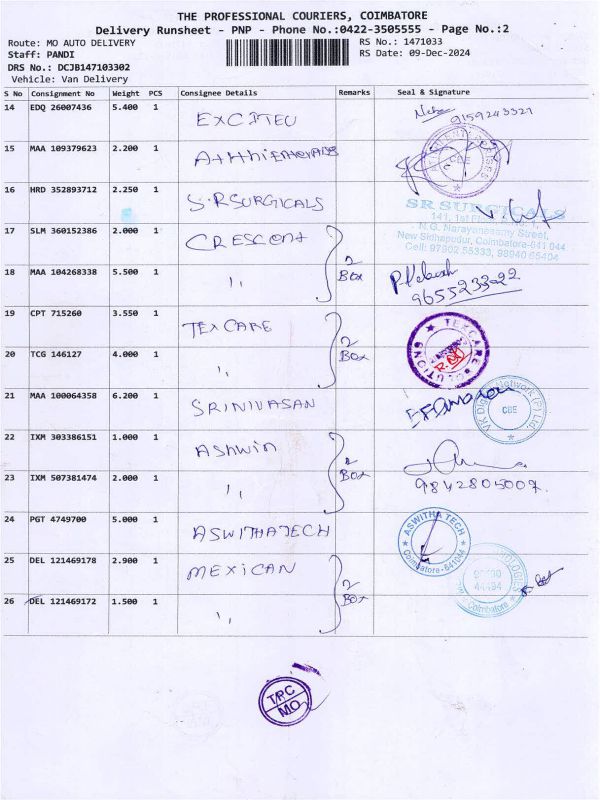 THE PROFESSIONAL COURIERS, COIMBATORE
Delivery Runsheet - PNP - Phone No.:0422-3505555 - Page No.:2
Route: MO AUTO DELIVERY
RS No.: 1471033
Staff: PANDI
RS Date: 09-Dec-2024
DRS No.: DCJB147103302
Vehicle: Van Delivery
S No Consignment No Weight PCS Consignee Details Remarks Seal & Signature
14 EDQ 26007436 5.400 1
9159243327
15 MAA 109379623 2.200 1
CBE
16 HRD 352893712 2.250 1 S.R SURGICALS
SR SURGICALS
141, 1st
N.G. Narayanasamy Street,
New Sidhapudur, Coimbatore-641 044
Cell: 97902 55333, 98940 65404
17 SLM 360152386 2.000 1 CRESCONT
2 Box
18 MAA 104268338 5.500 1 "
9655233322
19 CPT 715260 3.550 1 TEX CARE
2 Box
TEXCARE SOLUTIONS
20 TCG 146127 4.000 1 "
21 MAA 100064358 6.200 1 SRINIVASAN
VK Digital Network (P) Ltd.
CBE
22 IXM 303386151 1.000 1 Ashwin
2 Box
23 IXM 507381474 2.000 1 "
9842805007.
24 PGT 4749700 5.000 1 ASWITHATECH
ASWITHA TECH
Coimbatore-641044
25 DEL 121469178 2.900 1 MEXICAN
2 Box
44494
Coimbatore
26 DEL 121469172 1.500 1 "
TPC
MO